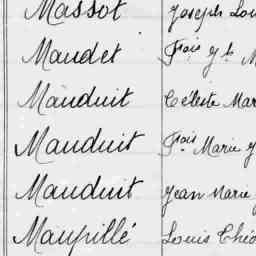 Massot Joseph Lou
Maudet Fçois
Mauduit Céleste Mar
Mauduit Fçois Marie
Mauduit Jean Marie
Maupillé Louis Théo